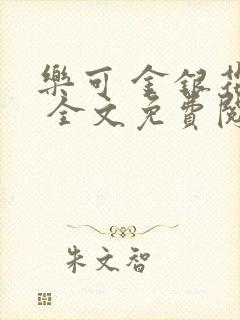 樂可 金銀花
全文免費閱
朱文智